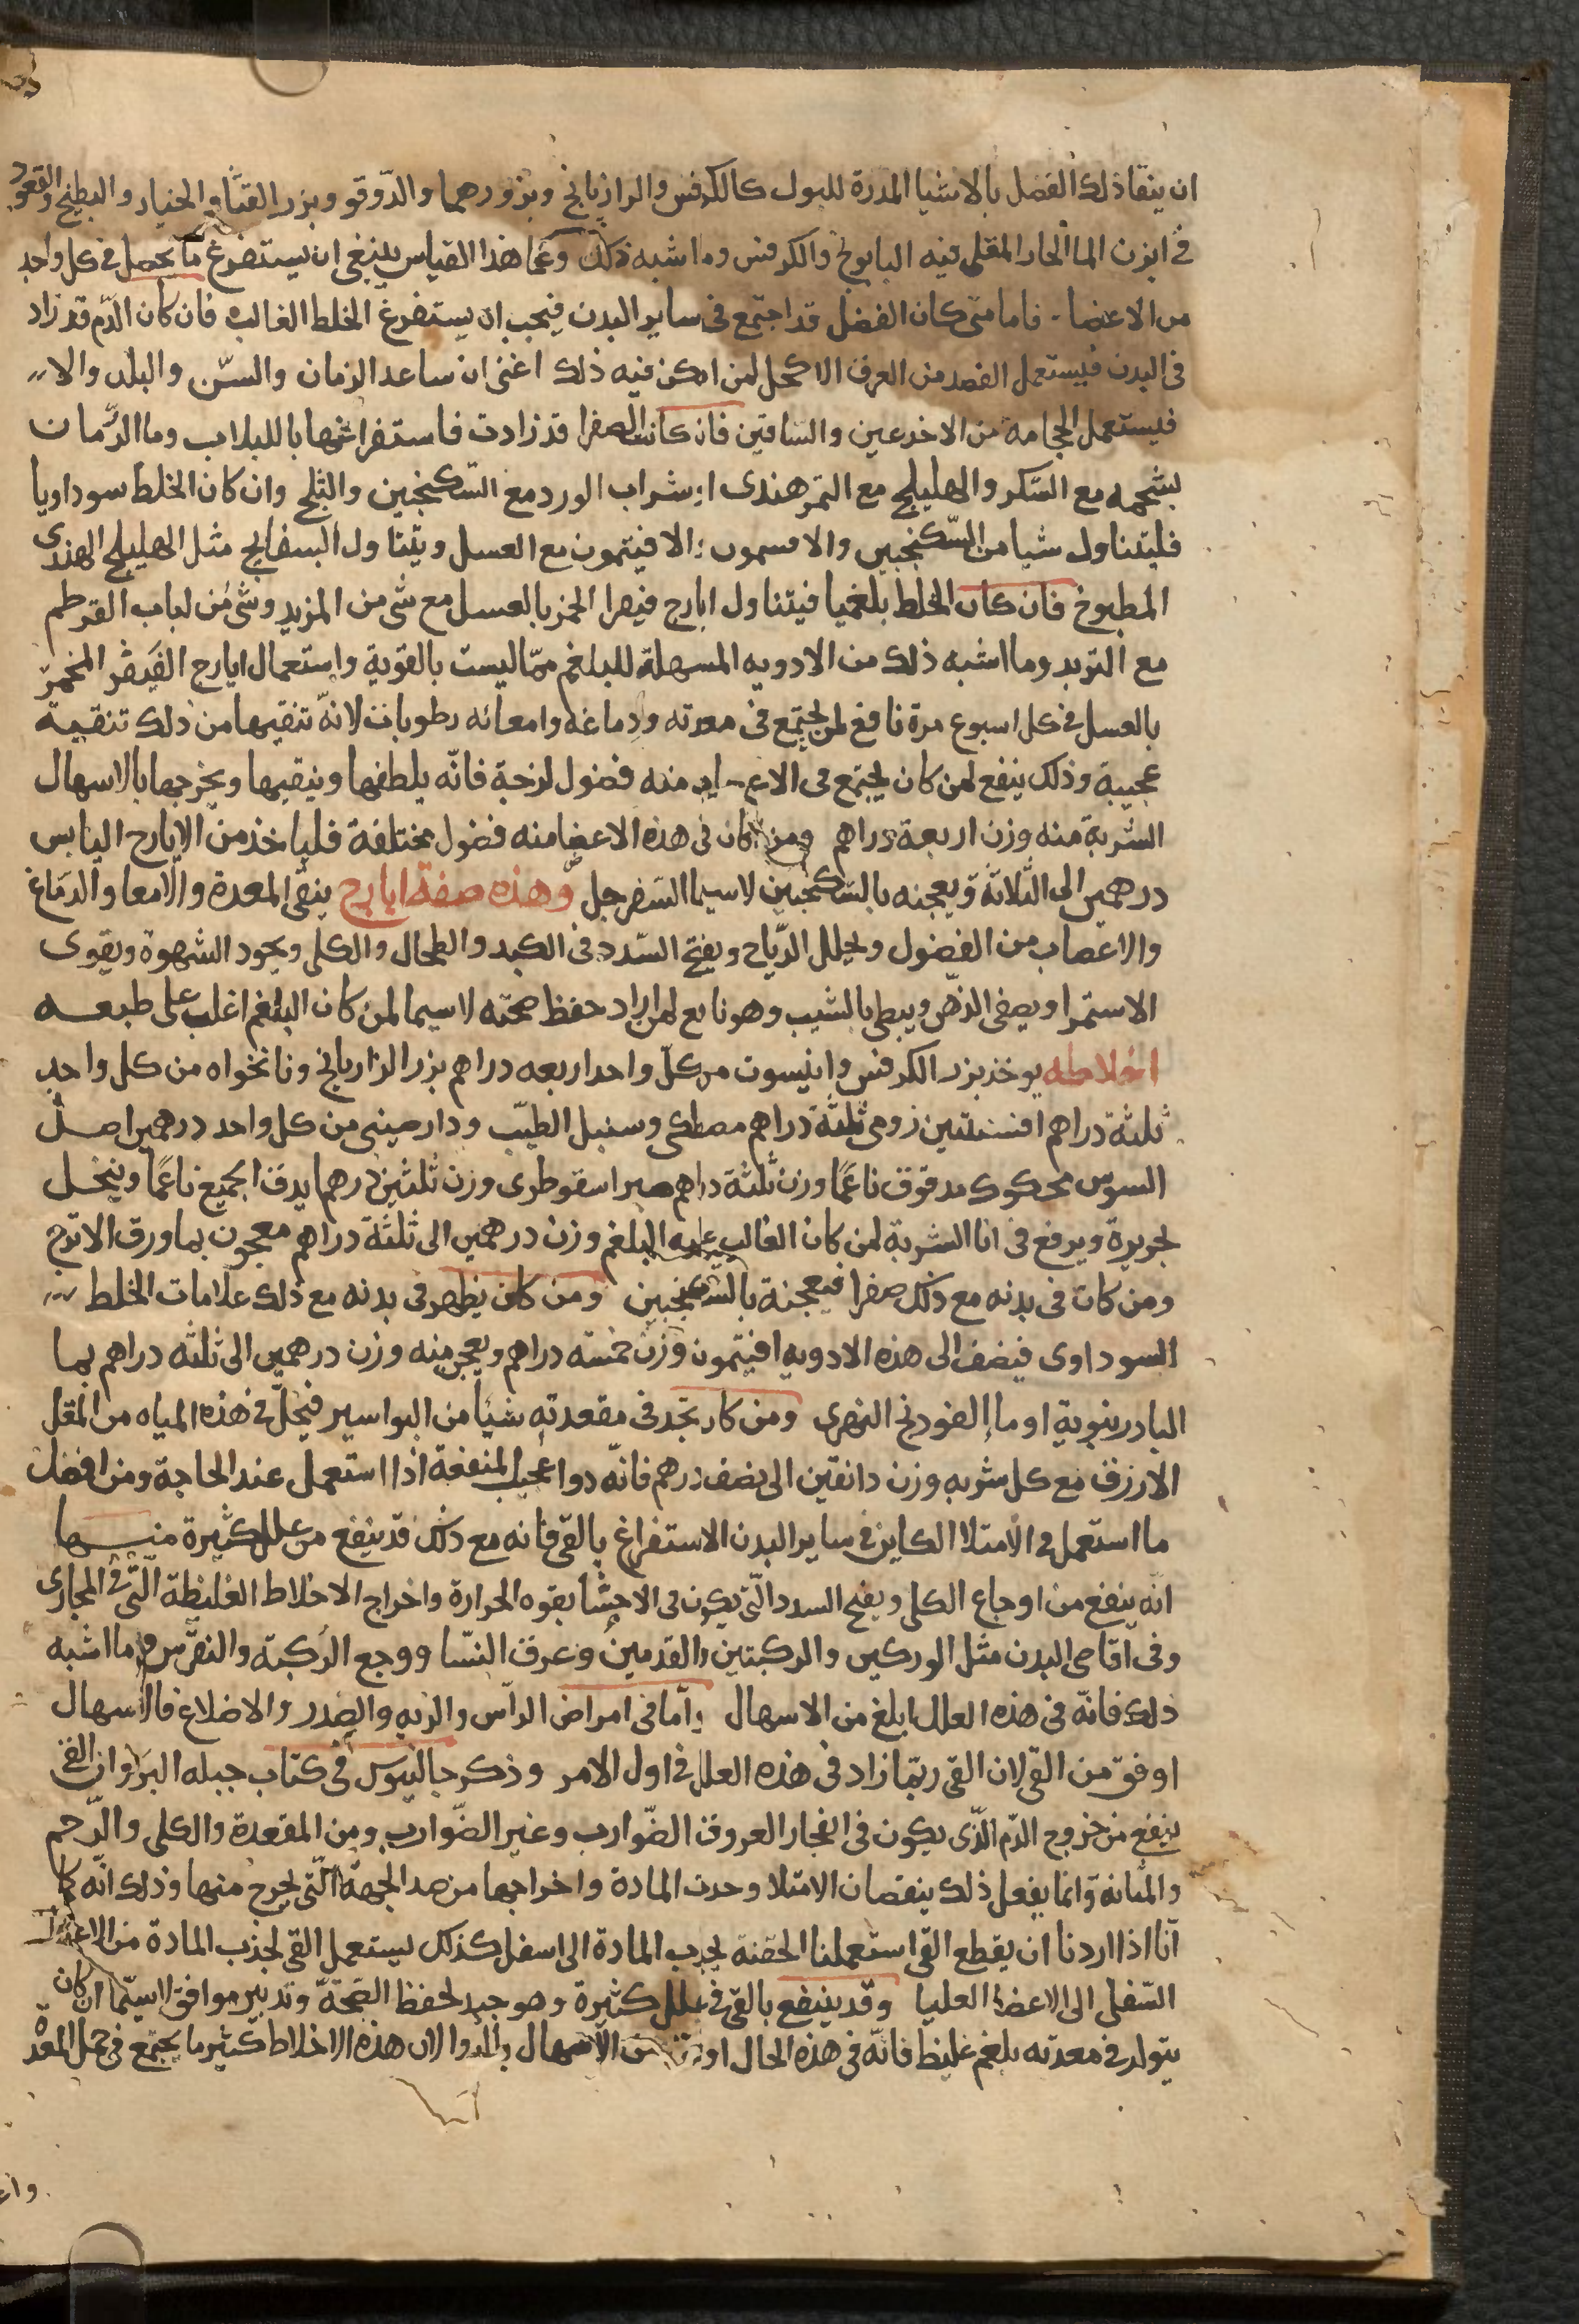 ان ينقا ذلك الفضل بالاشيا المدرة للبول كالكرفس والرازيانج وبزورهما والدّوقو وبزر القثّا والخيار والبطيخ والقعود
في ابزن الما الحار المغلى فيه البابونج والكرفس وما اشبه ذلك وعلى هذا القياس ينبغي ان يستفرغ ما يحصل في كل واحد
من الاعضا. فاما متى كان الفضل قد اجتمع في ساير البدن فيجب ان يستفرغ الخلط الغالب فان كان الدّم قد زاد
في البدن فيستعمل الفصد من العرق الاكحل لمن امكن فيه ذلك اعني ان ساعد الزمان والسّن والبلد والا
فيستعمل الحجامة من الاخدعين والساقين فان كانت الصفرا قد زادت فاستفراغها باللبلاب وما الرّمان
بشحمه مع السّكر والهليلج مع التمر هندى او شراب الورد مع السّكنجبين والثلج وان كان الخلط سوداويا
فليتناول شيا من السّكنجبين والافسمون او الافيتمون مع العسل ويتناول البسفايج مثل الهليلج الهندى
المطبوخ فان كان الخلط بلغميا فيتناول ايارج فيقرا المخمر بالعسل مع شى من المزيد وشى من لباب القرطم
مع التربد وما اشبه ذلك من الادويه المسهلة للبلغم ممّا ليست بالقوية واستعمال ايارج الفيقر المخمّر
بالعسل في كل اسبوع مرة نافع لمن يجتمع في معدته ودماغه وامعائه رطوبات لانّه تنقيها من ذلك تنقية
عجيبة وذلك ينفع لمن كان يجتمع في الاع منه فضول لزجة فانّه يلطفها وينقيها ويخرجها بالاسهال
الشربة منه وزن اربعة دراهم ومن كان في هذه الاعضا منه فضول مختلفة فلياخذ من الايارج اليابس
درهمين الى الثلاثة ويعجنه بالسّكنجبين لاسيما السّفرجل وهذه صفة ايارج ينقى المعدة والامعا والدّماغ
والاعصاب من الفضول ويحلل الرّياح ويفتح السّدد في الكبد والطحال والكلى ويجود الشهوة ويقوى
الاستمرا ويصفى الذهن ويبطى بالشيب وهو نافع لمن اراد حفظ صحته لاسيما لمن كان البلغم اغلب على طبعه
اخلاطه يوخذ بزر الكرفس وانيسون من كلّ واحد اربعه دراهم بزر الرازيانج ونانخواه من كل واحد
ثلثة دراهم افسنتين رومى ثلثة دراهم مصطكى وسنبل الطيّب ودارصينى من كل واحد درهمين اصل
السوس محكوك مدقوق ناعمًا وزن ثلثة دراهم صبر اسقوطرى وزن ثلثين درهما يدق الجميع ناعمًا وينخل
بحريرة ويرفع في انا الشربة لمن كان الغالب عليه البلغم وزن درهمين الى ثلثة دراهم معجون بما ورق الاترج
ومن كان في بدنه مع ذلك صفرا فيعجنه بالسّكنجبين ومن كان يظهر في بدنه مع ذلك علامات الخلط
السوداوى فيضف الى هذه الادويه افيتمون وزن خمسة دراهم ويعجن منه وزن درهمين الى ثلثه دراهم بما
البادرنبوية او ما الفودنج النهرى ومن كان يجد في مقعدته شيأ من البواسير فيحلّ في هذه المياه من المقل
الازرق مع كل شربه وزن دانقين الى نصف درهم فانّه دوا عجيب المنفعة اذا استعمل عند الحاجة ومن افضل
ما استعمل في الامتلا الكاين في ساير البدن الاستفراغ بالقى فانه مع ذلك قد ينفع من علل كثيرة منها
انّه ينفع من اوجاع الكلى ويفتح السدد الّتى يكون في الاحشا بقوه الحرارة واخراج الاخلاط الغليظة الّتى في المجارى
وفي اقاصى البدن مثل الوركين والركبتين والقدمين وعرق النسّا ووجع الركبة والنقرس وما اشبه
ذلك فانّه في هذه العلل ابلغ من الاسهال وامّا في امراض الراس والريه والصدر والاضلاع فالاسهال
اوفق من القى لان القى ربّما زاد في هذه العلل في اول الامر وذكر جالينوس في كتاب حيله البر وان القى
ينفع من خروج الدّم الذّى يكون في انفجار العروق الضّوارب وغير الضّوارب ومن المقعدة والكلى والرّحم
والمثانة وانّما يفعل ذلك بنقصان الامتلا وحدث المادة واخراجها من ضد الجهة الّتى يخرج منها وذلك انّه كما
انّا اذا اردنا ان يقطع القى استعملنا الحقنة لجذب المادة الى اسفل كذلك يستعمل القى لجذب المادة من الاعضا
السّفلى الى الاعضا العليا وقد ينتفع بالقى في علل كثيرة وهو جيد لحفظ الصّحة وتدبير موافق لاسيّما ان كان
يتولد في معدته بلغم غليظ فانّه في هذه الحال اوفق من الاسهال بالدوا لان هذه الاخلاط كثير ما يجتمع في خمل المعدة